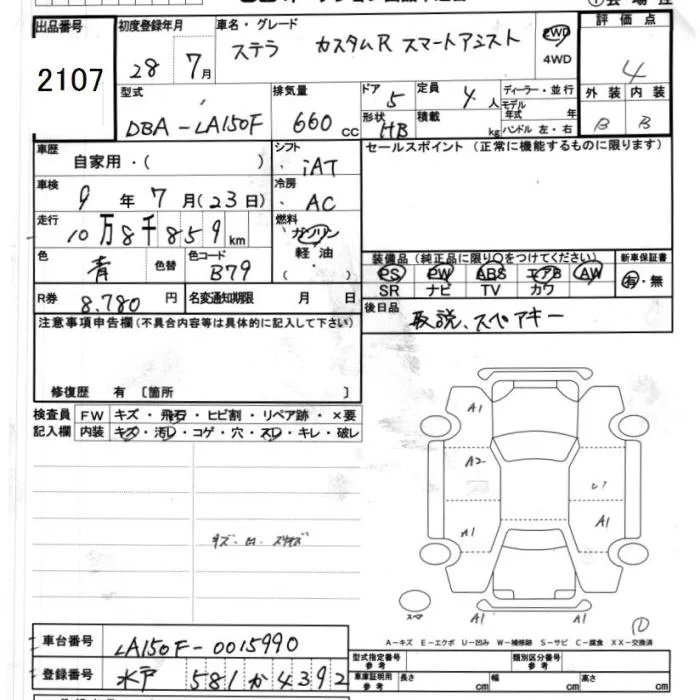 出品番号
2107
初度登録年月
28 7月
車名・グレード
ステラ カスタムR スマートアシスト
2WD
4WD
評価点
4
外装 内装
B B
型式
DBA-LA150F
排気量
660 cc
ドア 5
形状 HB
定員 4 人
積載 kg
ディーラー・並行
モデル年式 年
ハンドル 左・右
車歴
自家用・( )
シフト
iAT
セールスポイント(正常に機能するものに限ります)
車検
9 年 7 月(23日)
冷房
AC
走行
10万8千859km
燃料
ガソリン
軽油
( )
色
青
色替
色コード
B79
装備品(純正品に限り○をつけてください)
PS PW ABS エアB AW
SR ナビ TV カワ
新車保証書
有・無
R券
8,780 円
名変通知期限 月 日
後日品
取説、スペアキー
注意事項申告欄(不具合内容等は具体的に記入して下さい)
修復歴 有 〔箇所 〕
検査員記入欄
FW キズ・飛石・ヒビ割・リペア跡・×要
内装 キズ・汚レ・コゲ・穴・スレ・キレ・破レ
A1
A2
A1
U1
A1
スペア
A1
A1
A-キズ E-エクボ U-凹み W-補修跡 S-サビ C-腐食 XX-交換済
車台番号
LA150F-0015990
登録番号
水戸 581 か 4392
型式指定番号 参考
類別区分番号 参考
車庫証明用 参考
長さ cm
幅 cm
高さ cm